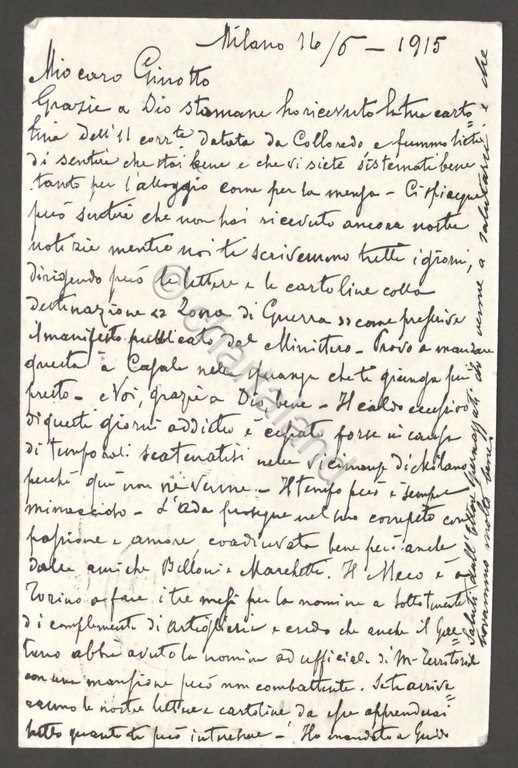 Milano 16/6 - 1915
Mio caro Ginotto
Grazie a Dio stamane ho ricevuto la tua carto=
lina dell'11 corr.te datata da Colloredo e fummo lieti
di sentire che stai bene e che vi siete sistemati bene
tanto per l'alloggio come per la mensa - Ci spiacque
però sentire che non hai ricevuto ancora nostre
notizie mentre noi ti scrivemmo tutti i giorni,
dirigendo però le lettere e le cartoline colla
destinazione << Zona di Guerra >> come prescrive
il manifesto pubblicato dal Ministero - Provo a mandare
questa a Casale nella speranza che ti giunga più
presto - e Noi, grazie a Dio, bene - Il caldo eccessivo
di questi giorni addietro è cessato forse in causa
di temporali scatenatisi nelle vicinanze di Milano
perchè qui non ne venne - Il tempo però è sempre
minaccioso - L'Ada prosegue nel suo compito con
passione e amore, coadiuvata bene però anche
dalle amiche Belloni e Marchetti. Il Meco è a
Torino a fare i tre mesi per la nomina a sottotenente
di complemento di artiglieria e credo che anche il
abbia avuto la nomina ad ufficiale di M. Territoriale
con una mansione però non combattente. Se ti arrive=
ranno le nostre lettere e cartoline da esse apprenderai
tutto quanto ti può interessare - Ho mandato a Guido
saluti dall'Ettore che venne a salutarci e che
trovammo molto bene
© Chartaland